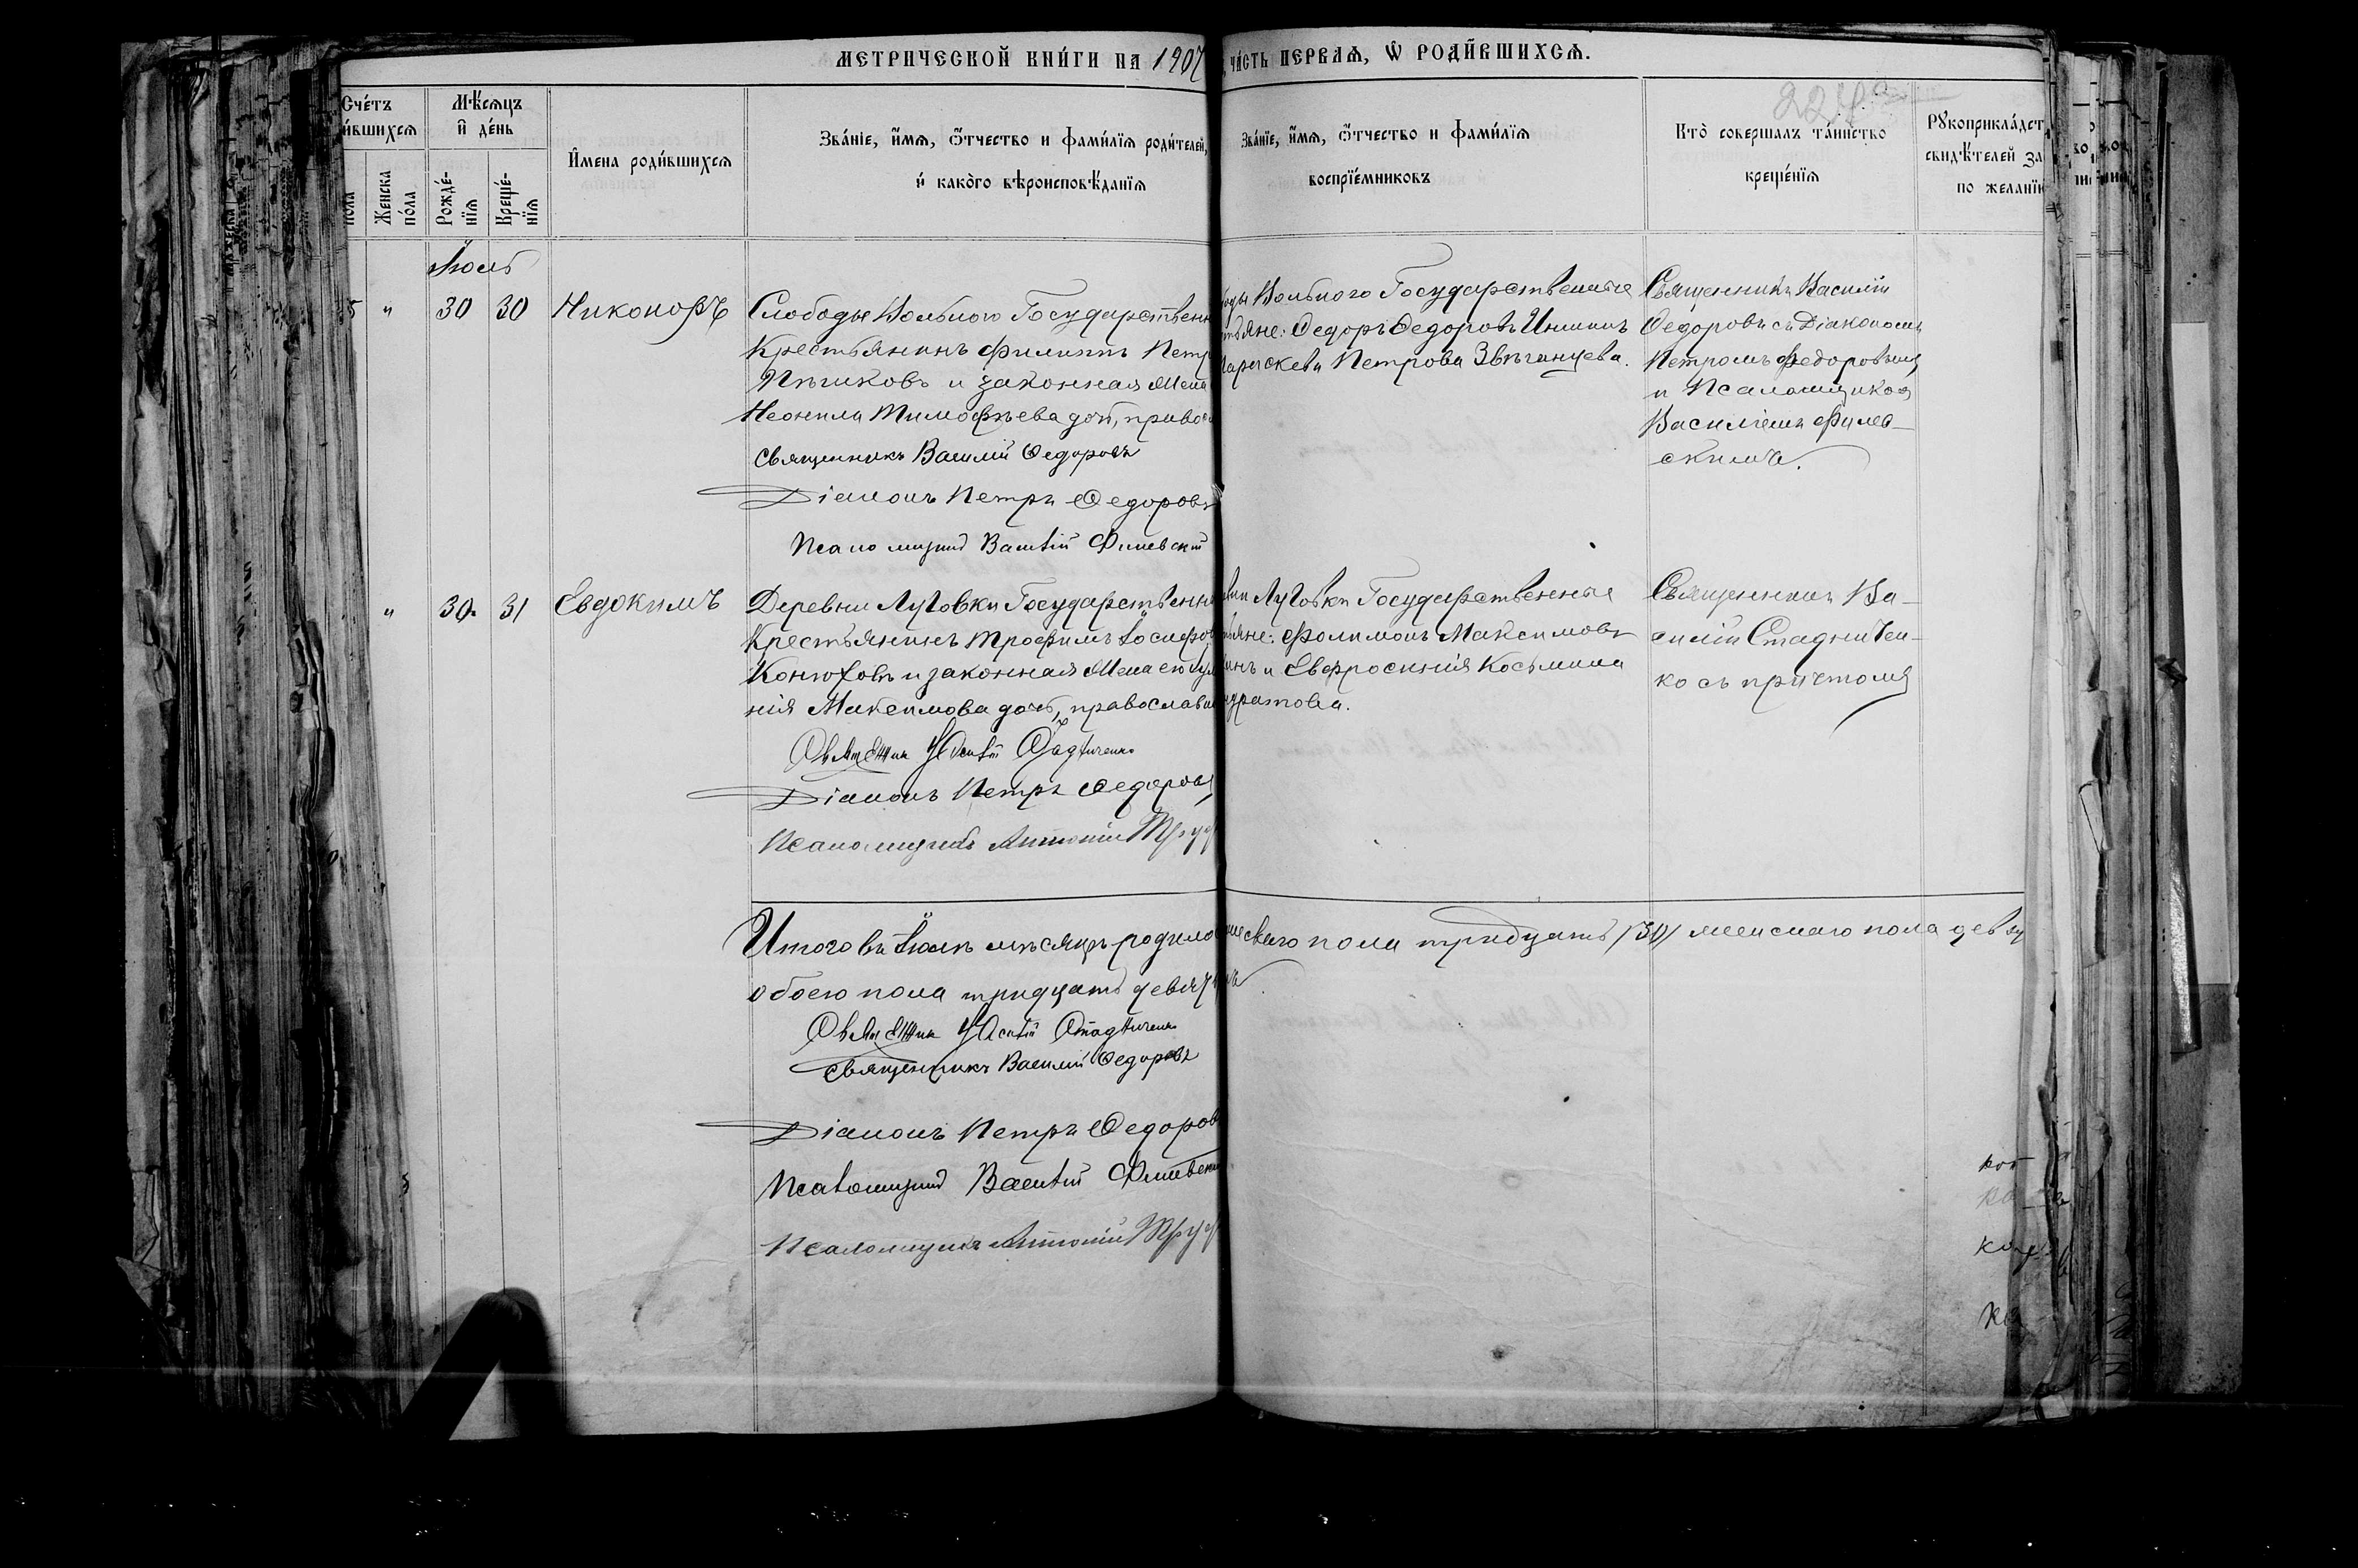 МЕТРИЧЕСКОЙ КНИ́ГИ НА 1907
ЧА́СТЬ ПЕРВАѦ, Ѡ РОДИ́ВШИХСѦ.
Сче́тъ
и́вшихсѧ
Мѣ́сѧцъ
и҆ де́нь
И҆мена роди́вшихсѧ
Зва́нїе, и҆́мѧ, ѻ҆́тчество и фами́лїѧ роди́телей,
и҆ како́го вѣроисповѣ́данїѧ
Зва́нїе, и҆́мѧ, ѻ҆́тчество и фами́лїѧ
воспрїе́мниковъ
Кто̀ совершалъ та́инство
креще́нїѧ
Рꙋкоприкла́дст
свидѣ́телей за
по жела́нїю
пола
Женска
по́ла
Рожде́-
нїѧ
Креще́-
нїѧ
Іюль
5 " 30 30 Никоноръ
Слободы Вольного Государственн
Крестьянинъ Филиппъ Петр
и законная жена
Неонила Тимофѣева дочь, правосл
Священникъ Василій Ѳедоровъ
Діаконъ Петръ Ѳедоровъ
Псаломщикъ Василій Филевскій
Вольного Государственные
Ѳедоръ Ѳедоровъ
Параскева Петрова Звѣгинцева.
Священникъ Василій
Ѳедоровъ съ Діакономъ
Петромъ Федоровымъ
и Псаломщикомъ
Василіемъ Филев-
скимъ.
" 30 31 Евдокимъ
Деревни Луговки Государственны
Крестьянинъ Трофимъ Іосифов
Конюховъ и законная жена его
нія Максимова дочь, православн
Священникъ Василій Стадниченко
Діаконъ Петръ Ѳедоровъ
Псаломщикъ Антоній Труф
Луговки Государственные
Филимонъ Максимовъ
и Евфросинія Косьмина
Священникъ Ва-
силій Стадничен-
ко съ причтомъ
Итого въ Іюлѣ мѣсяцѣ родило
мужескаго пола тридцать /30/ женскаго пола девять
обоего пола тридцать девять
Священникъ Василій Стадниченко
Священникъ Василій Ѳедоровъ
Діаконъ Петръ Ѳедоров
Псаломщикъ Василій Филевскі
Псаломщикъ Антоній Труф